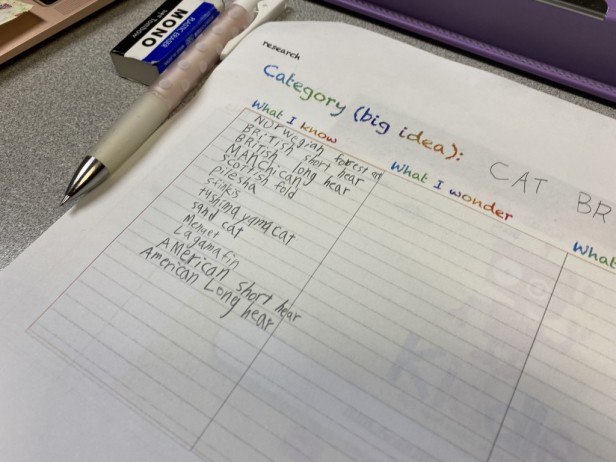 MONO
PLASTIC ERASER
research
Category (big idea): CAT BR
What I know
What I wonder
What
Norwegian forest
BRiTISH short hear
BRITISH long hear
MANChicang
scottish fold
piesha
skinks
tushima yamacat
sand cat
Menuet
Lagamafin
AMerican short hear
American Long hear